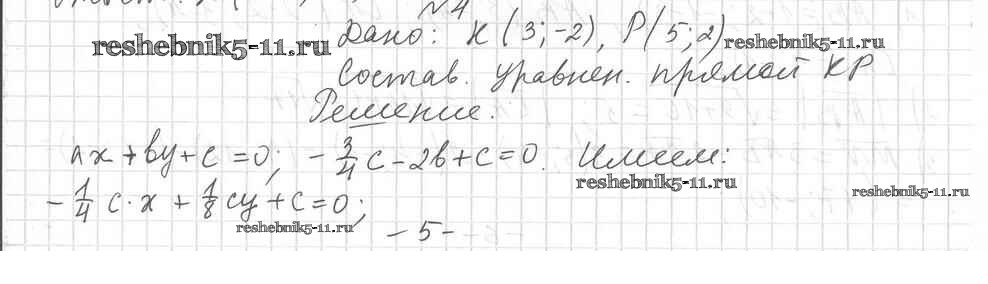 №4
Дано: K(3;-2), P(5;2)
reshebnik5-11.ru
reshebnik5-11.ru
Состав. уравнен. прямой KP
Решение.
ax+by+c=0; -3/4c-2b+c=0. Имеем:
reshebnik5-11.ru
reshebnik5-11.ru
-1/4c·x+1/8cy+c=0;
reshebnik5-11.ru
-5-